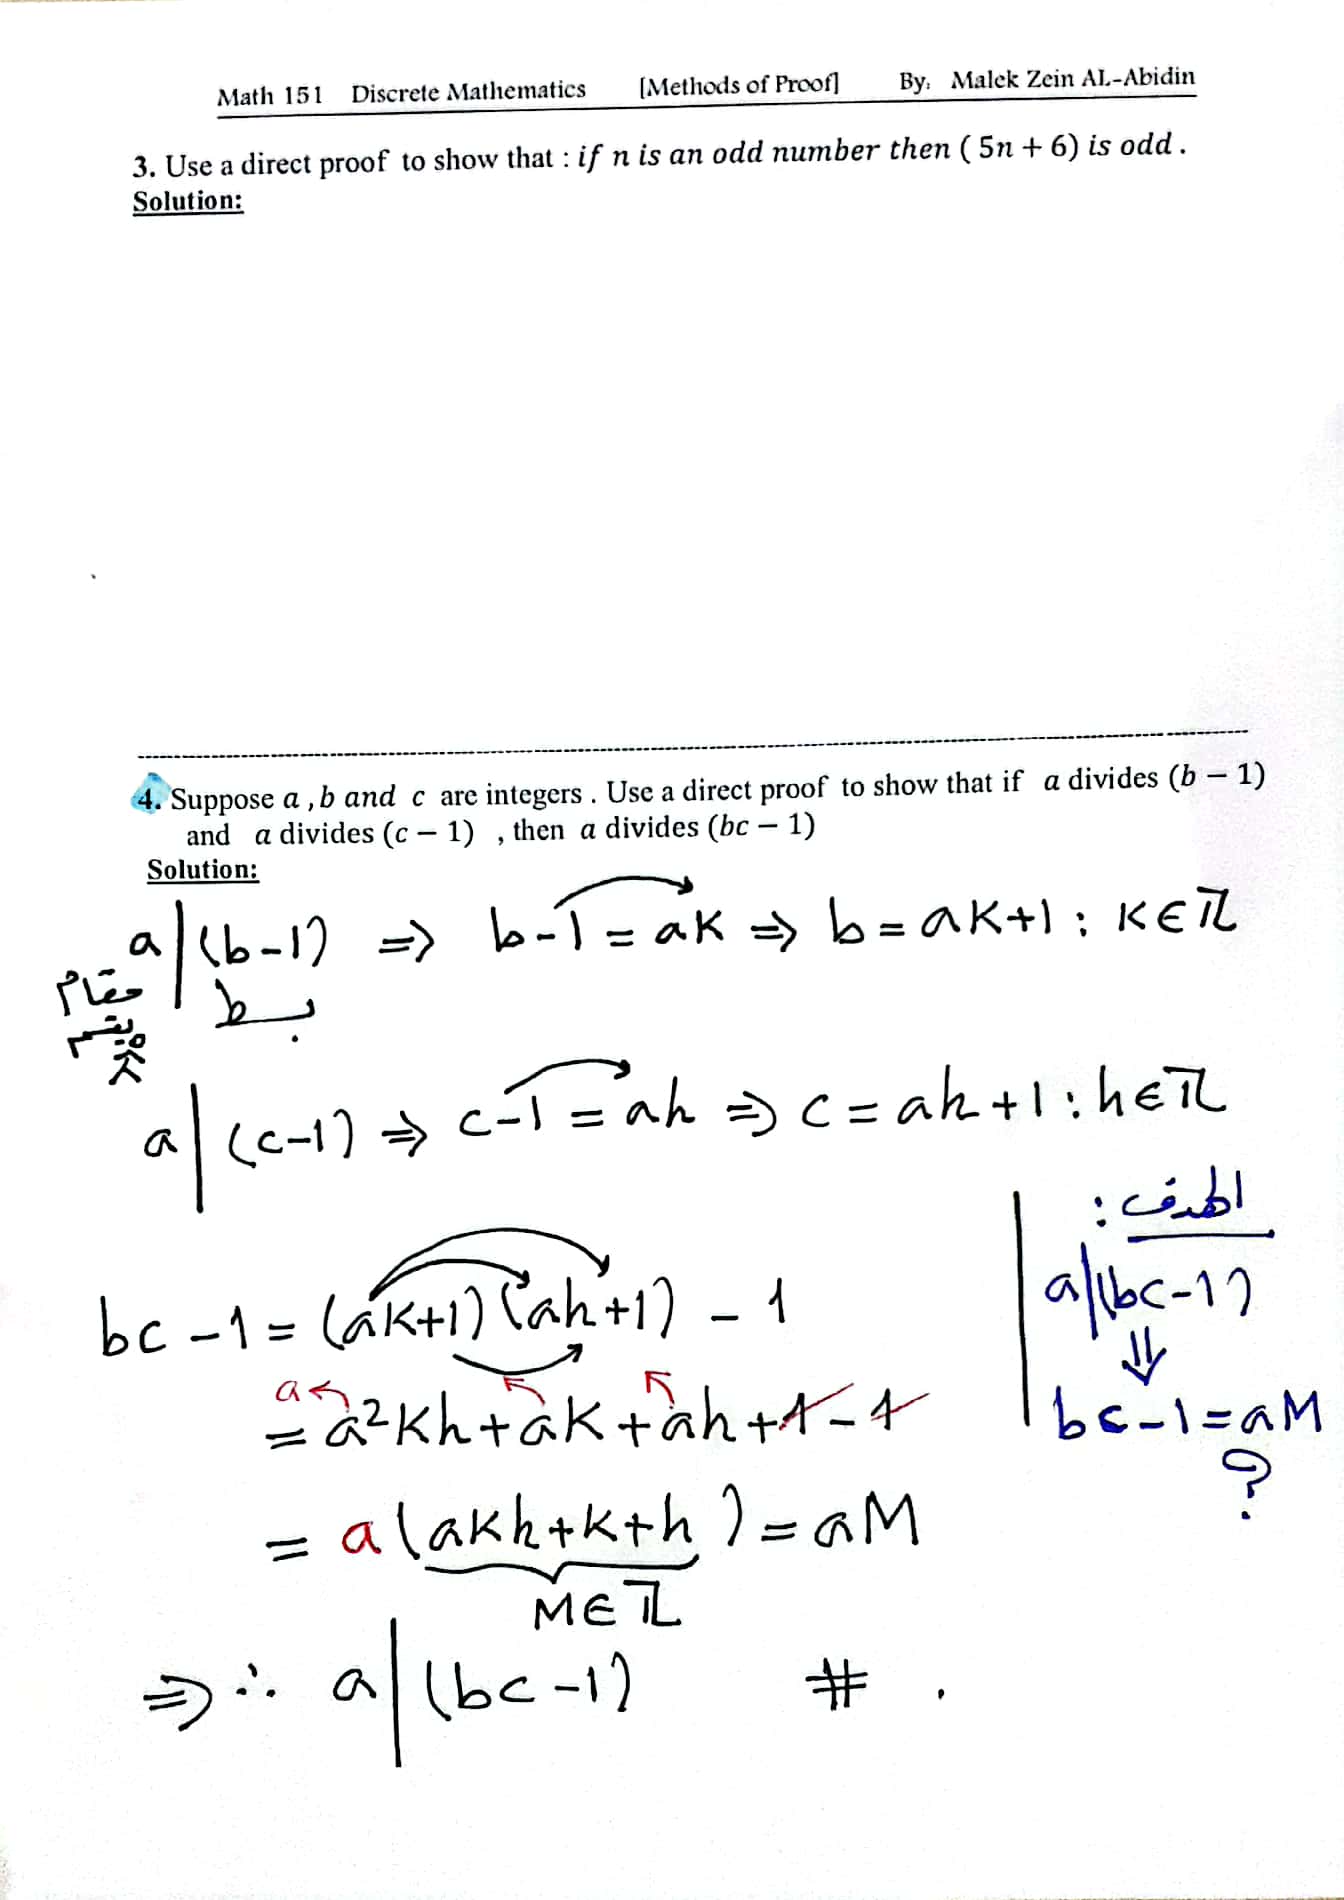 Math 151 Discrete Mathematics [Methods of Proof] By: Malek Zein AL-Abidin
3. Use a direct proof to show that : if n is an odd number then ( 5n + 6) is odd .
Solution:
4. Suppose a , b and c are integers . Use a direct proof to show that if a divides (b − 1)
and a divides (c − 1) , then a divides (bc − 1)
Solution:
a | (b-1) ⇒ b-1 = aK ⇒ b = aK+1 ; K∈ℤ
مقام بسط
a | (c-1) ⇒ c-1 = ah ⇒ c = ah+1 : h∈ℤ
الهدف :
a | (bc-1)
⇓
bc-1=aM
?
bc -1 = (aK+1) (ah+1) - 1
a
= a²Kh + aK + ah + 1 - 1
= a (aKh+K+h) = aM
M∈ℤ
⇒ ∴ a | (bc-1) # .